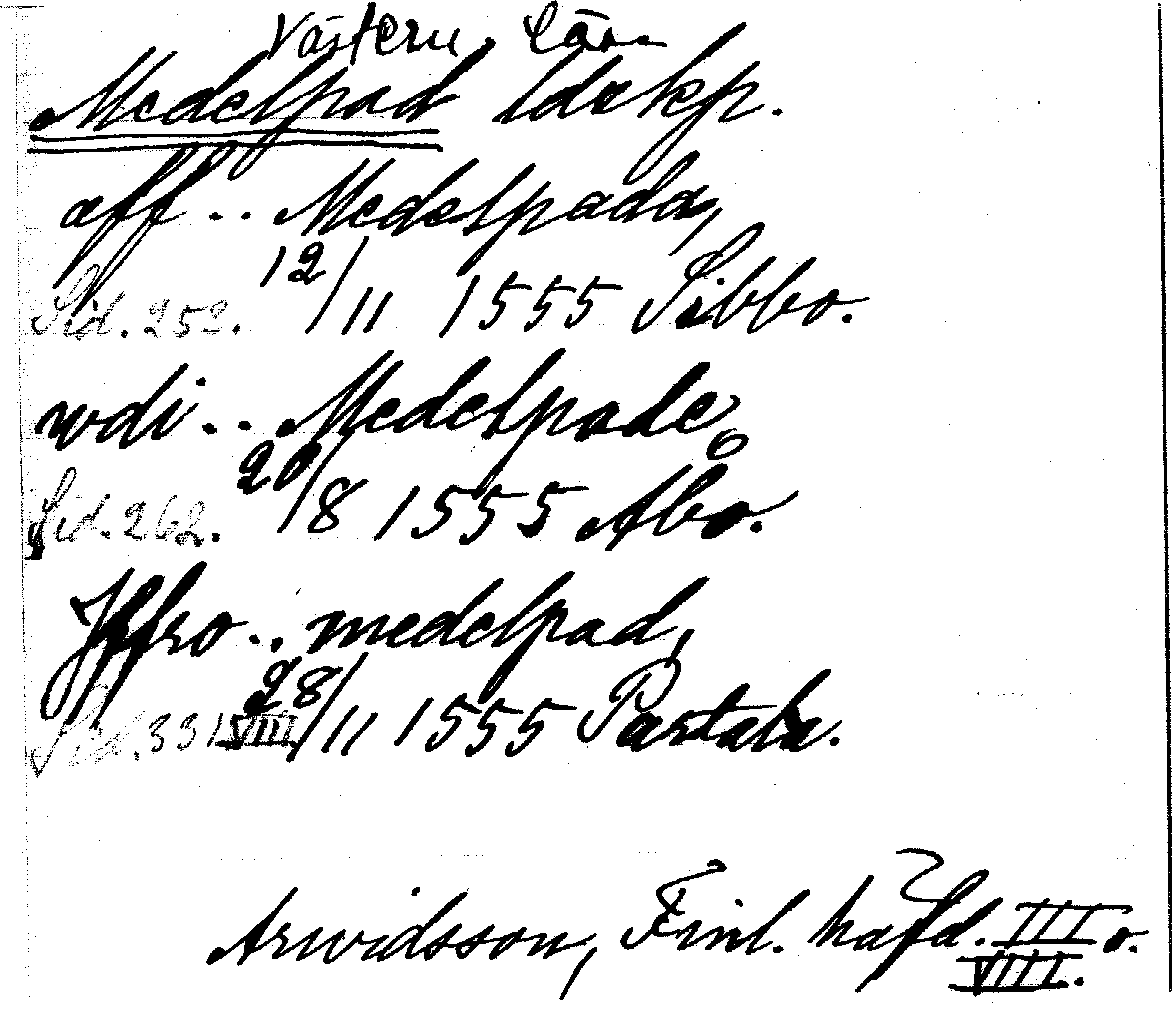 Västern. Län
Medelpad ldskp.
aff .. Medelpada,
Sid. 252. 12/11 1555 Sibbo.
wdi .. Medelpade,
Sid. 262. 20/8 1555 Åbo.
Jffro .. medelpad,
Sid. 331 VIII 28/11 1555 Partala.
Arwidsson, Finl. häfd. III o.
VIII.